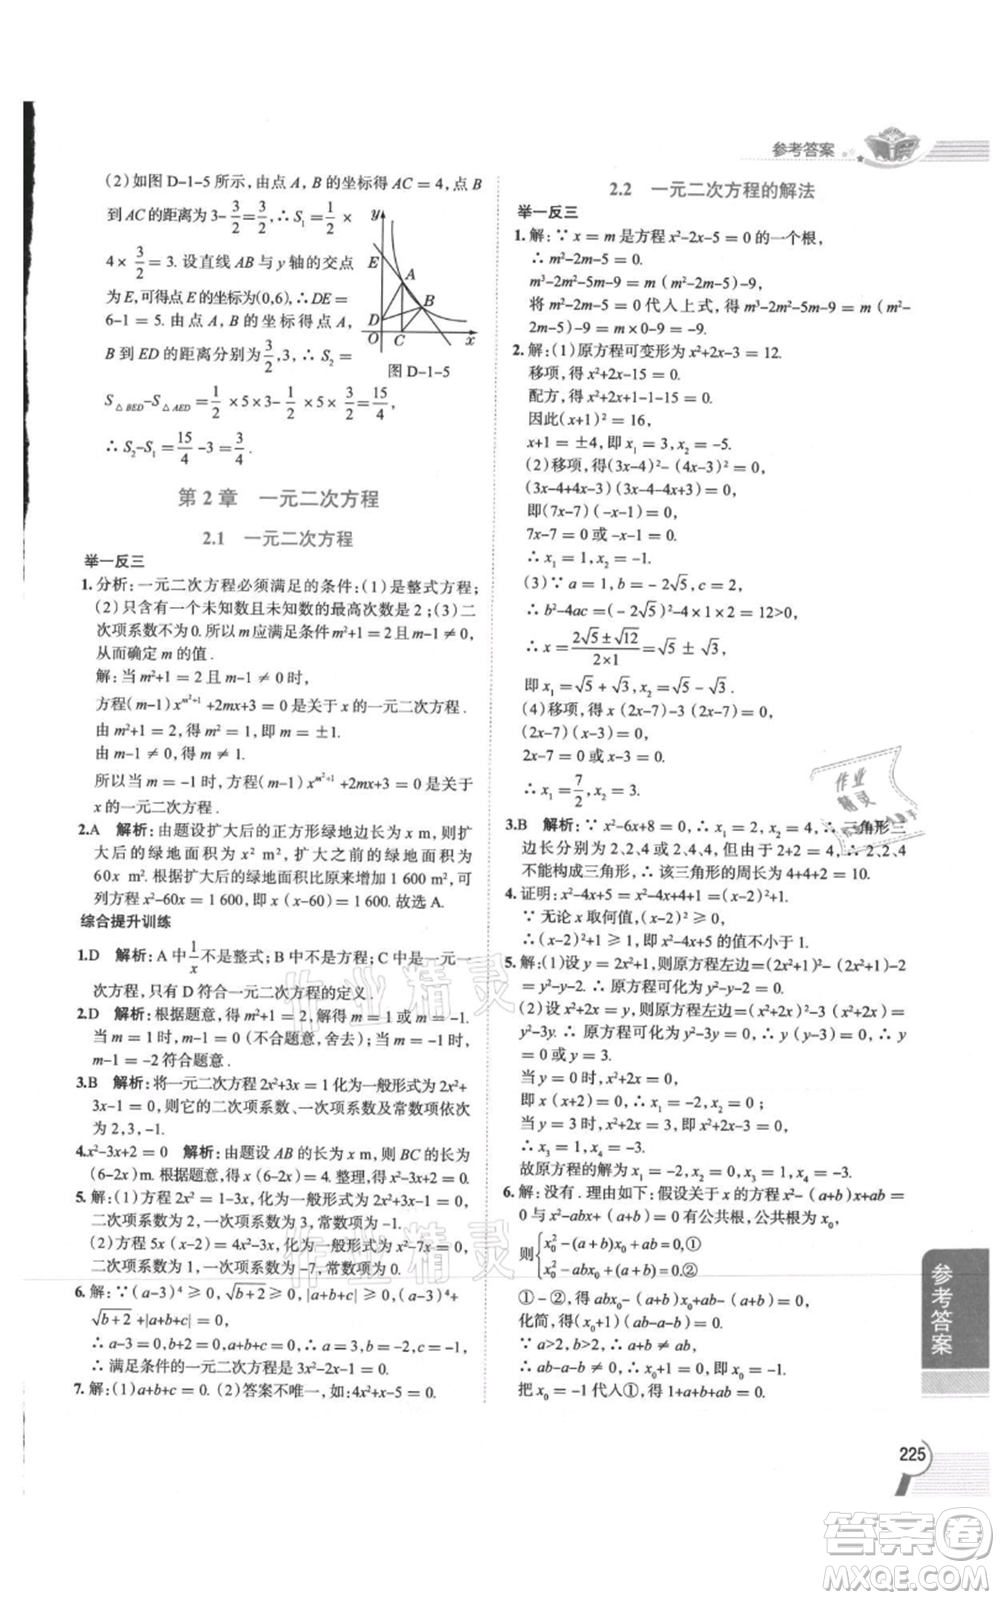 参考答案
(2)如图 D-1-5 所示,由点 A、B 的坐标可得 AC = 4,点 B
到 AC 的距离为 3-3/2=3/2,∴ S₁=1/2 ×
4 × 3/2 = 3. 设直线 AB 与 y 轴的交点
为 E,可得点 E 的坐标为(0,6),∴ DE =
6-1 = 5. 由点 A、B 的坐标可得点 A、
B 到 ED 的距离分别为 3/2,3,∴ S₂ =
S△BED-S△AED = 1/2 ×5×3-1/2 ×5×3/2=15/4,
∴ S₂-S₁ =15/4-3=3/4.
y
E
A
B
D
O
C
x
图 D-1-5
第 2 章 一元二次方程
2.1 一元二次方程
举一反三
1.分析:一元二次方程必须满足的条件:(1)是整式方程;
(2)只含有一个未知数且未知数的最高次数是 2;(3)二
次项系数不为 0. 所以 m 应满足条件 m²+1 = 2 且 m-1 ≠ 0,
从而确定 m 的值.
解:当 m²+1 = 2 且 m-1 ≠ 0 时,
方程(m-1)x^(m²+1) +2mx+3 = 0 是关于 x 的一元二次方程.
由 m²+1 = 2,得 m = ±1. 由 m-1 ≠ 0,得 m ≠ 1.
所以当 m = -1 时,方程(m-1)x^(m²+1) +2mx+3 = 0 是关于
x 的一元二次方程.
2.A 解析:由题设扩大后的正方形绿地边长为 x m,则扩
大后的绿地面积为 x² m²,扩大之前的绿地面积为
60x m². 由扩大后的绿地面积比原来增加 1 600 m²,可
列方程 x²-60x = 1 600,即 x(x-60)= 1 600. 故选 A.
综合提升训练
1.D 解析:A 中1/x不是整式;B 中不是方程;C 中是一元一
次方程,只有 D 符合一元二次方程的定义.
2.D 解析:根据题意,得 m²+1 = 2,解得 m = 1 或 m = -1.
当 m = 1 时,m-1 = 0(不合题意,舍去);当 m = -1 时,
m-1 = -2 符合题意.
3.B 解析:将一元二次方程 2x²+3x = 1 化为一般形式为 2x²+
3x-1 = 0,则它的二次项系数、一次项系数及常数项分别
为 2,3,-1.
4.x²-3x+2 = 0 解析:由题设 AB 的长为 x m,则 BC 的长为
(6-2x)m. 根据题意,得 x(6-2x)= 4. 整理,得 x²-3x+2 = 0.
5.解:(1)方程 2x² = 1-3x,化为一般形式为 2x²+3x-1 = 0,
二次项系数为 2,一次项系数为 3,常数项为 -1.
(2)方程 5x(x-2)= 4x²-3x,化为一般形式为 x²-7x = 0,
二次项系数为 1,一次项系数为 -7,常数项为 0.
6.解:∵ (a-3)⁴ ≥ 0,√(b+2) ≥ 0,|a+b+c| ≥ 0,且(a-3)⁴+
√(b+2) +|a+b+c| = 0,
∴ a-3 = 0,b+2 = 0,a+b+c = 0,∴ a = 3,b = -2,c = -1.
∴ 满足条件的一元二次方程为 3x²-2x-1 = 0.
7.解:(1)a+b+c = 0. (2)答案不唯一,如:4x²+x-5 = 0.
2.2 一元二次方程的解法
举一反三
1.解:∵ x = m 是方程 x²-2x-5 = 0 的一个根,
∴ m²-2m-5 = 0.
m³-2m²-5m-9 = m(m²-2m-5)-9,
将 m²-2m-5 = 0 代入上式,得 m³-2m²-5m-9 = m(m²-
2m-5)-9 = m×0-9 = -9.
2.解:(1)原方程可变形为 x²+2x-3 = 12.
移项,得 x²+2x-15 = 0.
配方,得 x²+2x+1-1-15 = 0.
因此(x+1)² = 16,
x+1 = ±4,即 x₁ = 3,x₂ = -5.
(2)移项,得(3x-4)² -(3x-4)(4x-4)= 0,
(3x-4)(3x-4-4x+4)= 0,
即(3x-4)(-x)= 0,
7x-7 = 0 或 -x = 0,
∴ x₁ = 1,x₂ = 0.
(3)∵ a = 1,b = -2√5,c = 2,
∴ b²-4ac = (-2√5)²-4×1×2 = 12>0,
∴ x =(2√5 ± √12)/(2×1)=√5 ± √3,
即 x₁ =√5 + √3,x₂ =√5 - √3.
(4)移项,得 x(2x-7)-3(2x-7)= 0,
(2x-7)(x-3)= 0,
2x-7 = 0 或 x-3 = 0,
∴ x₁ = 7/2,x₂ = 3.
3.B 解析:∵ x²-6x+8 = 0,∴ x₁ = 2,x₂ = 4,∴ 三角形三
边长分别为 2、2、4 或 2、4、4,但 2+2 = 4,∴ 2、2、4
不能构成三角形,∴ 该三角形的周长为 4+4+2 = 10.
4.证明:x²-4x+5 = x²-4x+4+1 =(x-2)²+1.
∵ 无论 x 取何值,(x-2)² ≥ 0,
∴ (x-2)²+1 ≥ 1,即 x²-4x+5 的值不小于 1.
5.解:(1)设 y = 2x²+1,则原方程左边=(2x²+1)²-(2x²+1)-2
= y²-y-2. ∴ 原方程可化为 y²-y-2 = 0.
(2)设 y = x²+2x,则原方程左边=(x²+2x)²-3(x²+2x)=
y²-3y. ∴ 原方程可化为 y²-3y = 0. ∴ y(y-3)= 0.
∴ y = 0 或 y = 3.
当 y = 0 时,x²+2x = 0,
即 x(x+2)= 0,∴ x₁ = 0,x₂ = -2;
当 y = 3 时,x²+2x = 3,即 x²+2x-3 = 0,
∴ x₃ = 1,x₄ = -3.
故原方程的解为 x₁ = 0,x₂ = -2,x₃ = 1,x₄ = -3.
6.解:没有. 理由如下:假设关于 x 的方程 x²-(a+b)x+ab =
0 与 x²-abx+(a+b)= 0 有公共根,公共根为 x₀,
则{x₀²-(a+b)x₀+ab = 0,①
x₀²-abx₀+(a+b)= 0.②
①-②,得 abx₀-(a+b)x₀+ab-(a+b)= 0,
化简,得(x₀+1)(ab-a-b)= 0.
∵ a>2,b>2,∴ ab≠a+b,
∴ ab-a-b ≠ 0,∴ x₀+1 = 0,即 x₀ = -1.
把 x₀ = -1 代入①,得 1+a+b+ab = 0.
参考答案
225
作业精灵
作业精灵
作业
精灵
答案卷
MXQE.COM